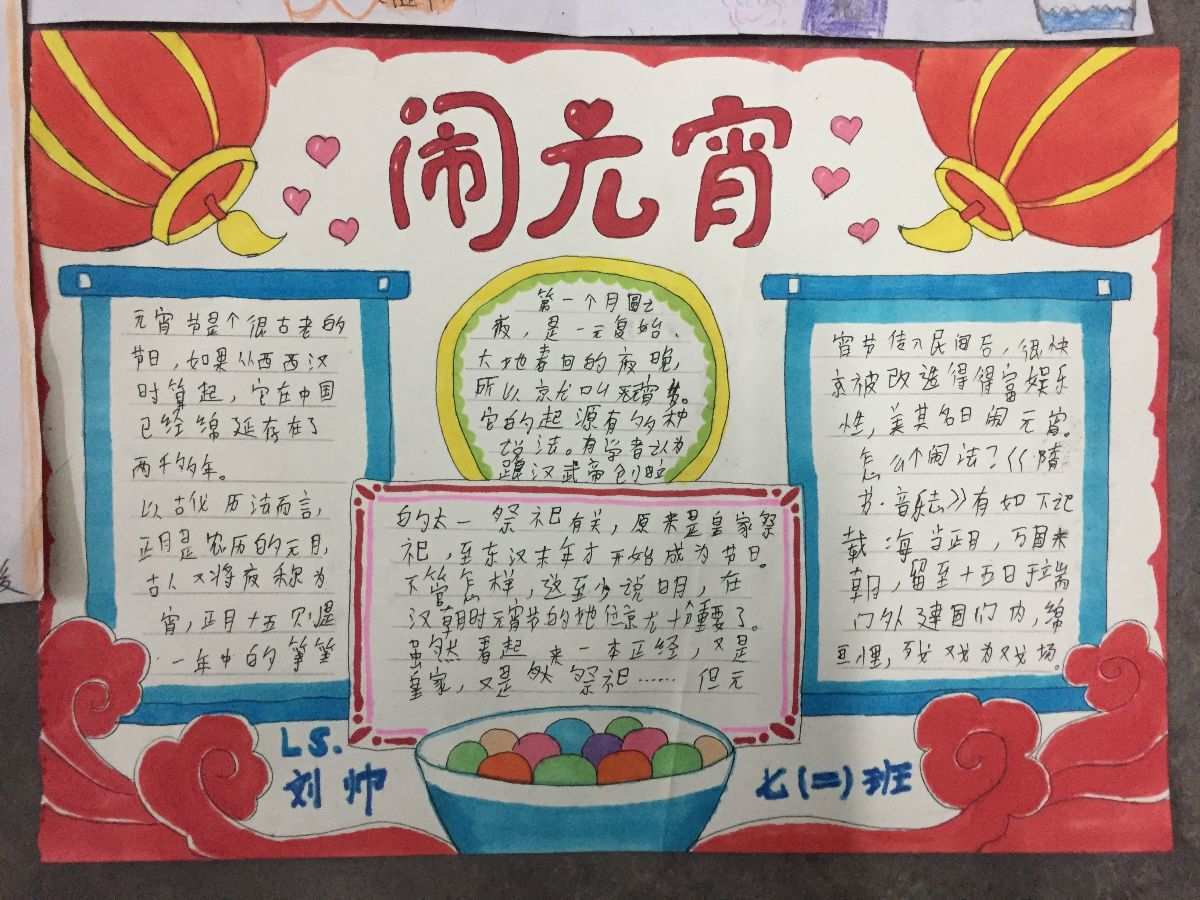 闹元宵
元宵节是个很古老的
节日,如果从西西汉
时算起,它在中国
已经绵延存在了
两千多年。
以古代历法而言,
正月是农历的元月,
古人又将夜称为
宵,正月十五
一年中的第
第一个月圆之
夜,是一元复始、
大地春回的夜晚,
所以京尤叫元宵
它的起源有多种
说法。有学者认为
跟汉武帝创
的太一祭祀有关,原来是皇家祭
祀,至东汉末年才开始成为节日。
不管怎样,这至少说明,在
汉朝时元宵节的地位京尤十分重要了。
虽然看起来一本正经,又是
皇家,又是祭祀……但元
宵节传入民间后,很快
京被改造得得富娱乐
性,美其名曰闹元宵。
怎么个闹法?《隋
书·音乐志》有如下记
载:海当正月,万国来
朝,留至十五日于端
门外建国门内,绵
亘八里,列戏为戏场。
LS.
刘帅
七(二)班